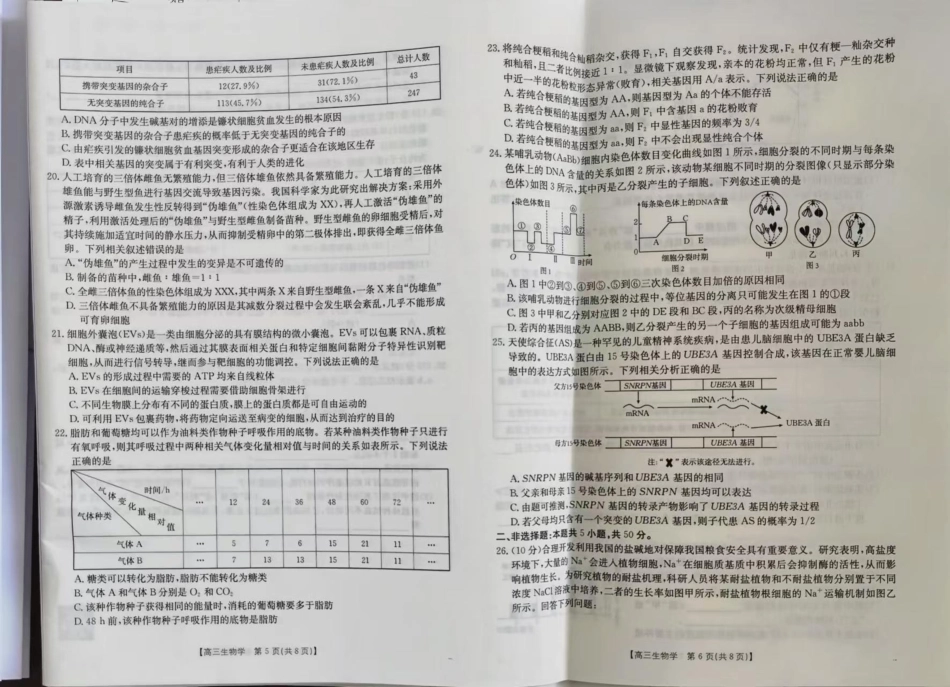 项目 患疟疾人数及比例 未患疟疾人数及比例 总计人数
携带突变基因的杂合子 12(27.9%) 31(72.1%) 43
无突变基因的纯合子 113(45.7%) 134(54.3%) 247
A. DNA 分子中发生碱基对的增添是镰状细胞贫血发生的根本原因
B. 携带突变基因的杂合子患疟疾的概率低于无突变基因的纯合子的
C. 由疟疾引发的镰状细胞贫血基因突变形成的杂合子更适合在该地区生存
D. 表中相关基因的突变属于有利突变,有利于人类的进化
20. 人工培育的三倍体雌鱼无繁殖能力,但三倍体雄鱼依然具备繁殖能力。人工培育的三倍体
雄鱼能与野生型鱼进行基因交流导致基因污染。我国科学家为此研究出解决方案:采用外
源激素诱导雌鱼发生性反转得到“伪雄鱼”(性染色体组成为 XX),再人工激活“伪雄鱼”的
精子,利用激活处理后的“伪雄鱼”与野生型雌鱼制备苗种。野生型雌鱼的卵细胞受精后,对
其持续施加适宜时间的静水压力,从而抑制受精卵中的第二极体排出,即获得全雌三倍体鱼
卵。下列相关叙述错误的是
A.“伪雄鱼”的产生过程中发生的变异是不可遗传的
B. 制备的苗种中,雌鱼:雄鱼=1:1
C. 全雌三倍体鱼的性染色体组成为 XXX,其中两条 X 来自野生型雌鱼,一条 X 来自“伪雄鱼”
D. 三倍体雌鱼不具备繁殖能力的原因是其减数分裂过程中会发生联会紊乱,几乎不能形成
可育卵细胞
21. 细胞外囊泡(EVs)是一类由细胞分泌的具有膜结构的微小囊泡。EVs 可以包裹 RNA、质粒
DNA、酶或神经递质等,然后通过其膜表面相关蛋白和特定细胞间黏附分子特异性识别靶
细胞,从而进行信号转导,继而参与靶细胞的功能调控。下列说法正确的是
A. EVs 的形成过程中需要的 ATP 均来自线粒体
B. EVs 在细胞间的运输穿梭过程需要借助细胞骨架进行
C. 不同生物膜上分布有不同的蛋白质,膜上的蛋白质都是可自由运动的
D. 可利用 EVs 包裹药物,将药物定向运送至病变的细胞,从而达到治疗的目的
22. 脂肪和葡萄糖均可以作为油料类作物种子呼吸作用的底物。若某种油料类作物种子只进行
有氧呼吸,则其呼吸过程中两种相关气体变化量相对值与时间的关系如表所示。下列说法
正确的是
气体种类 气体变化量相对值 时间/h … 12 24 36 48 60 72 …
气体 A … 5 7 6 15 21 11 …
气体 B … 7 13 13 15 21 11 …
A. 糖类可以转化为脂肪,脂肪不能转化为糖类
B. 气体 A 和气体 B 分别是 O₂ 和 CO₂
C. 该种作物种子获得相同的能量时,消耗的葡萄糖要多于脂肪
D. 48 h 前,该种作物种子呼吸作用的底物是脂肪
【高三生物学 第 5 页(共 8 页)】
23. 将纯合粳稻和纯合籼稻杂交,获得 F₁,F₁ 自交获得 F₂。统计发现,F₂ 中仅有粳—籼杂交种
和籼稻,且二者比例接近 1:1。显微镜下观察发现,亲本的花粉均正常,但 F₁ 产生的花粉
中近一半的花粉粒形态异常(败育),相关基因用 A/a 表示。下列说法正确的是
A. 若纯合粳稻的基因型为 AA,则基因型为 Aa 的个体不能存活
B. 若纯合粳稻的基因型为 AA,则 F₁ 中含基因 a 的花粉败育
C. 若纯合粳稻的基因型为 aa,则 F₂ 中显性基因的频率为 3/4
D. 若纯合粳稻的基因型为 aa,则 F₂ 中不会出现显性纯合个体
24. 某哺乳动物(AaBb)细胞内染色体数目变化曲线如图 1 所示,细胞分裂的不同时期与每条染
色体上的 DNA 含量的关系如图 2 所示,该动物某细胞不同时期的分裂图像(只显示部分染
色体)如图 3 所示,其中丙是乙分裂产生的子细胞。下列叙述正确的是
染色体数目
① ② ③ ④ ⑤ ⑥
O Ⅰ Ⅱ Ⅲ 时间
图1
每条染色体上的DNA含量
2 1 0
A B C D E
细胞分裂时期
图2
甲 乙 丙
图3
A. 图 1 中②到③、④到⑤、⑤到⑥三次染色体数目加倍的原因相同
B. 该哺乳动物进行细胞分裂的过程中,等位基因的分离只可能发生在图 1 的①段
C. 图 3 中甲和乙分别对应图 2 中的 DE 段和 BC 段,丙的名称为次级精母细胞
D. 若丙的基因组成为 AABB,则乙分裂产生的另一个子细胞的基因组成可能为 aabb
25. 天使综合征(AS)是一种罕见的儿童精神系统疾病,是由患儿脑细胞中的 UBE3A 蛋白缺乏
导致的。UBE3A 蛋白由 15 号染色体上的 UBE3A 基因控制合成,该基因在正常婴儿脑细
胞中的表达方式如图所示。下列相关分析正确的是
父方15号染色体 SNRPN基因 UBE3A 基因
mRNA
mRNA
mRNA UBE3A 蛋白
母方15号染色体 SNRPN基因 UBE3A 基因
注:“✖”表示该途径无法进行。
A. SNRPN 基因的碱基序列和 UBE3A 基因的相同
B. 父亲和母亲 15 号染色体上的 SNRPN 基因均可以表达
C. 由题可推测,SNRPN 基因的转录产物影响了 UBE3A 基因的转录过程
D. 若父母均只含有一个突变的 UBE3A 基因,则子代患 AS 的概率为 1/2
二、非选择题:本题共 5 小题,共 50 分。
26. (10 分)合理开发利用我国的盐碱地对保障我国粮食安全具有重要意义。研究表明,高盐度
环境下,大量的 Na⁺ 会进入植物细胞,Na⁺ 在细胞质基质中积累后会抑制酶的活性,从而影
响植物生长。为研究植物的耐盐机理,科研人员将某耐盐植物和不耐盐植物分别置于不同
浓度 NaCl 溶液中培养,二者的生长率如图甲所示,耐盐植物根细胞的 Na⁺ 运输机制如图乙
所示。回答下列问题:
【高三生物学 第 6 页(共 8 页)】